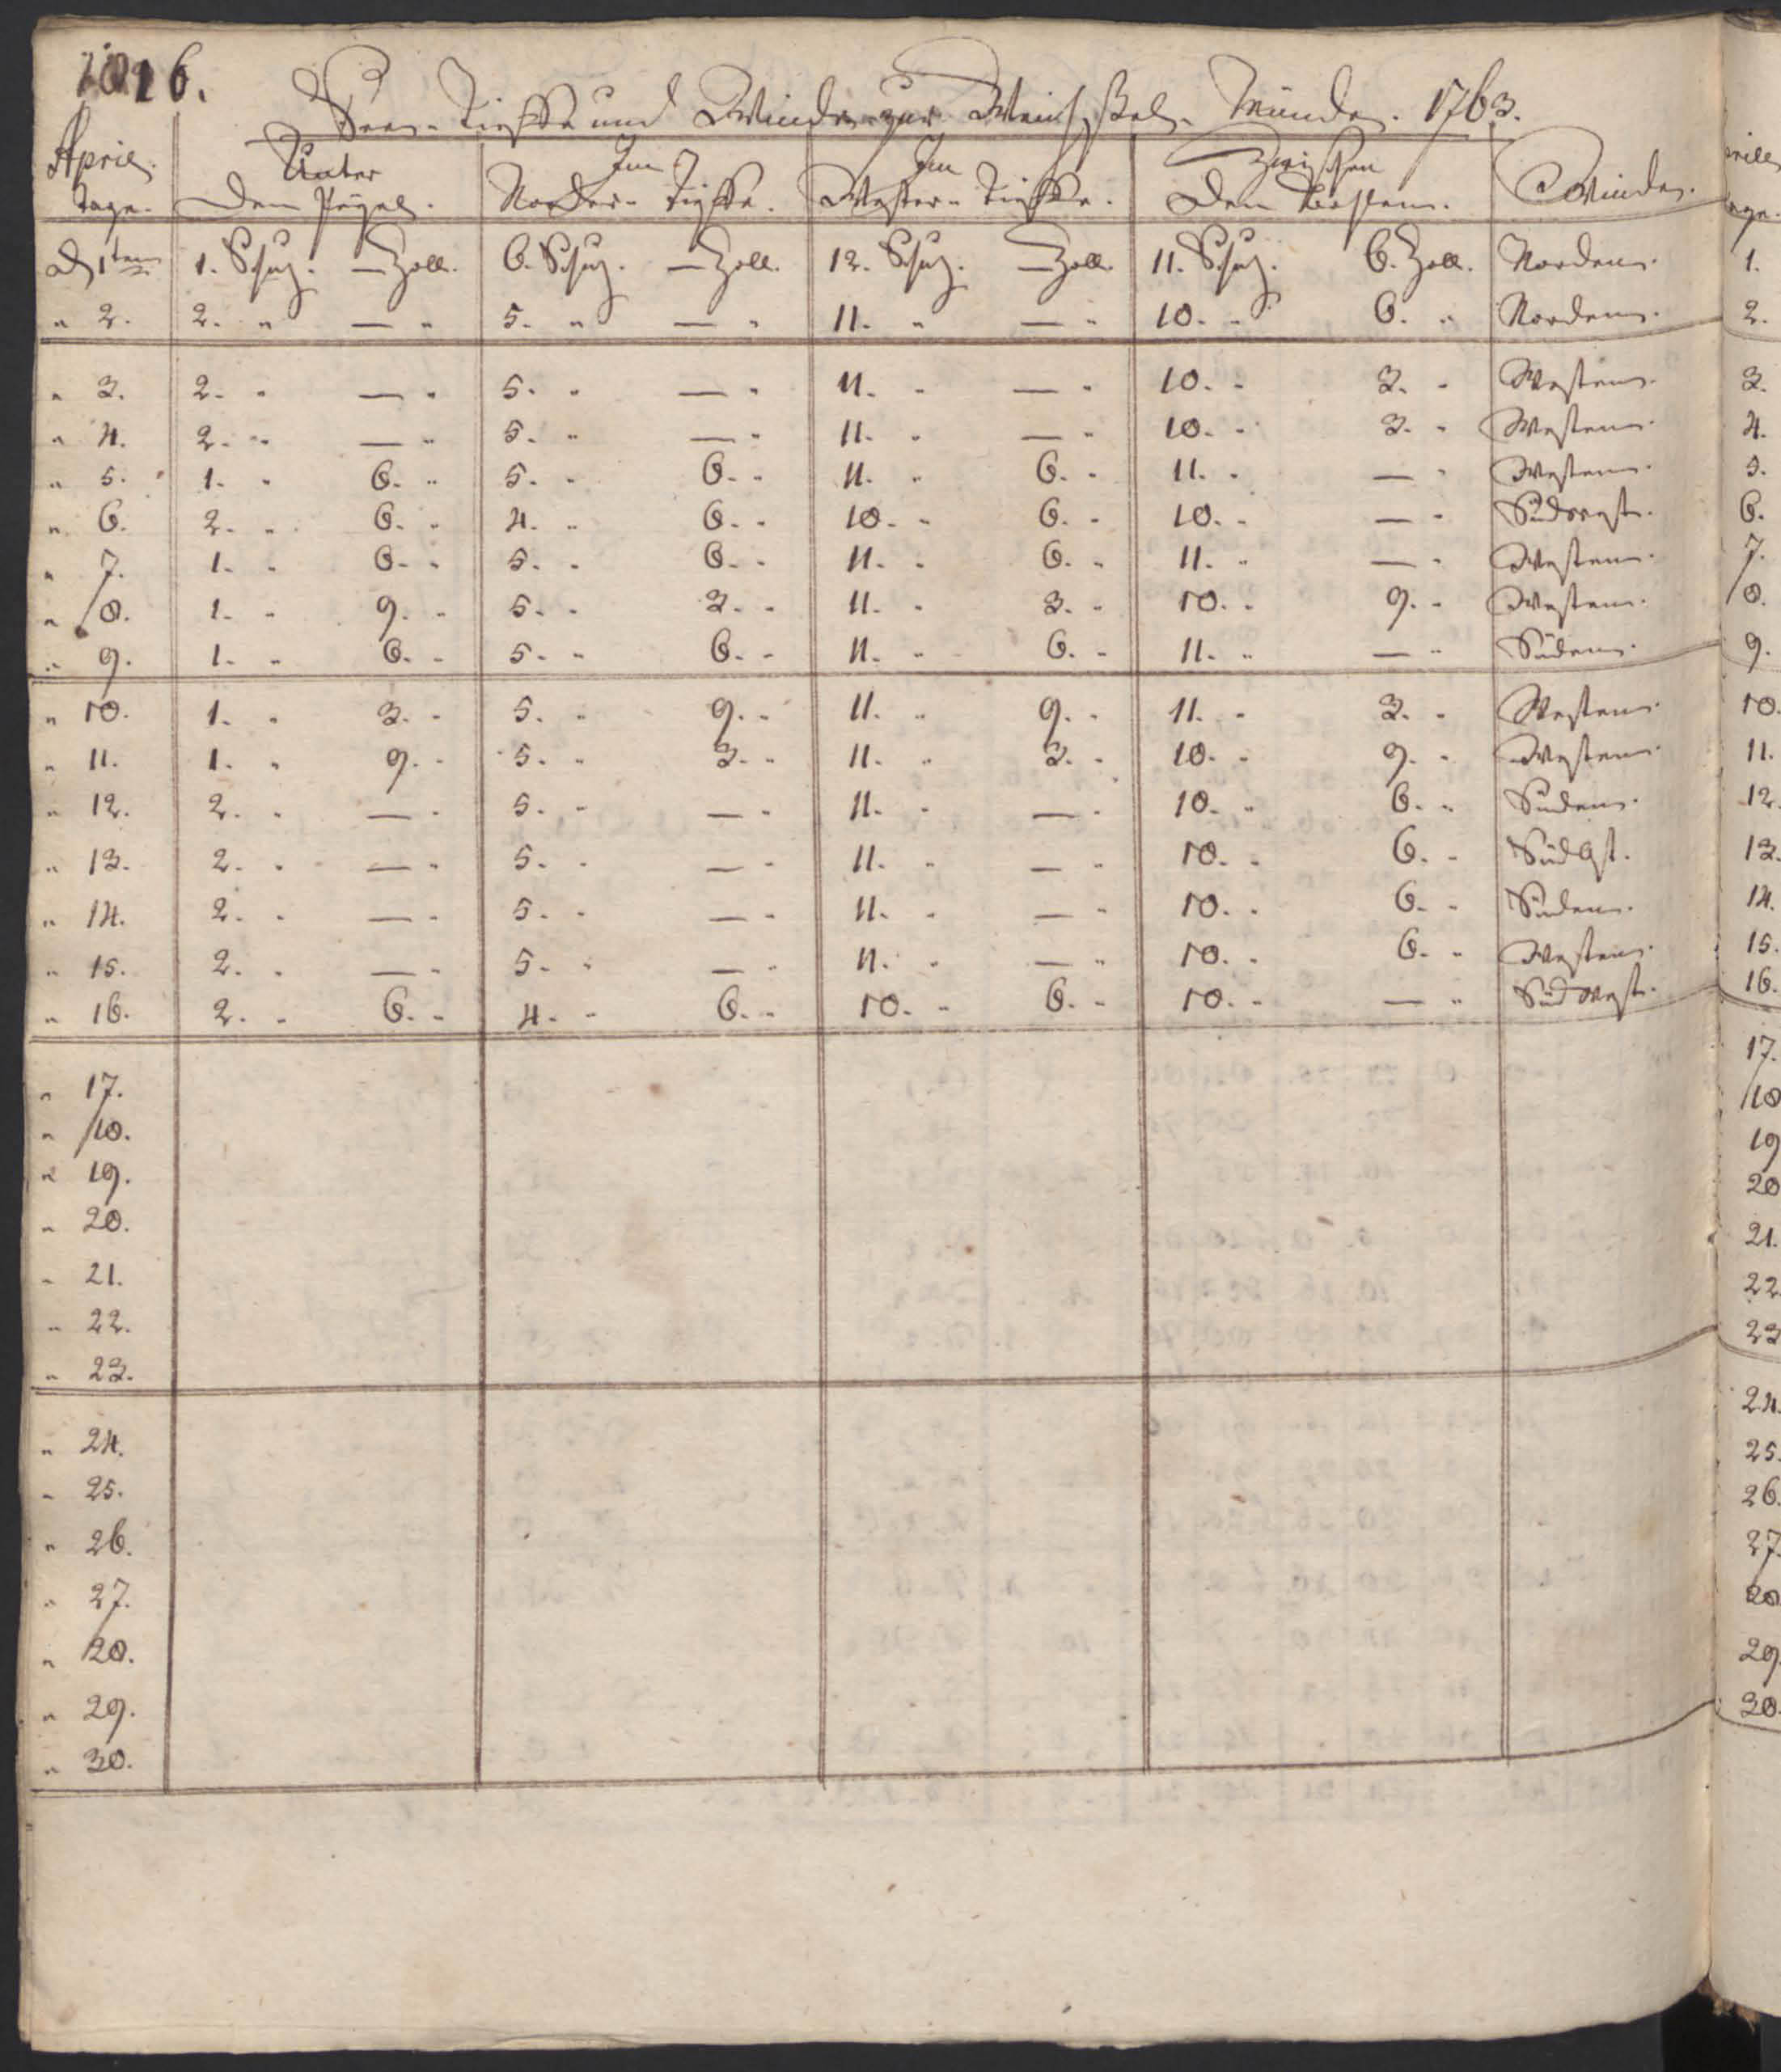 6.
See-Tieffe und Winde zur Weichselmünde. 1763.
April Tage. | Unter dem Pegel. | Im Norder-Tieffe. | Im Wester-Tieffe. | Zwischen den Kisten. | Winde.
d 1ten 1. Schuh. — Zoll. 6. Schuh. — Zoll. 12. Schuh. — Zoll. 11. Schuh. 6. Zoll. Norden.
" 2. 2. " — " 5. " — " 11. " — " 10. " 6. " Norden.
" 3. 2. " — " 5. " — " 11. " — " 10. " 3. " Westen.
" 4. 2. " — " 5. " — " 11. " — " 10. " 3. " Westen.
" 5. 1. " 6. " 5. " 6. " 11. " 6. " 11. " — " Westen.
" 6. 2. " 6. " 4. " 6. " 10. " 6. " 10. " — " Südwest.
" 7. 1. " 6. " 5. " 6. " 11. " 6. " 11. " — " Westen.
" 8. 1. " 9. " 5. " 3. " 11. " 3. " 10. " 9. " Westen.
" 9. 1. " 6. " 5. " 6. " 11. " 6. " 11. " — " Süden.
" 10. 1. " 3. " 5. " 9. " 11. " 9. " 11. " 3. " Westen.
" 11. 1. " 9. " 5. " 3. " 11. " 3. " 10. " 9. " Westen.
" 12. 2. " — " 5. " — " 11. " — " 10. " 6. " Süden.
" 13. 2. " — " 5. " — " 11. " — " 10. " 6. " SüdOst.
" 14. 2. " — " 5. " — " 11. " — " 10. " 6. " Süden.
" 15. 2. " — " 5. " — " 11. " — " 10. " 6. " Westen.
" 16. 2. " 6. " 4. " 6. " 10. " 6. " 10. " — " Südwest.
" 17.
" 18.
" 19.
" 20.
" 21.
" 22.
" 23.
" 24.
" 25.
" 26.
" 27.
" 28.
" 29.
" 30.
1.
2.
3.
4.
5.
6.
7.
8.
9.
10.
11.
12.
13.
14.
15.
16.
17.
18
19
20
21.
22
23
24.
25.
26.
27.
28
29.
30.